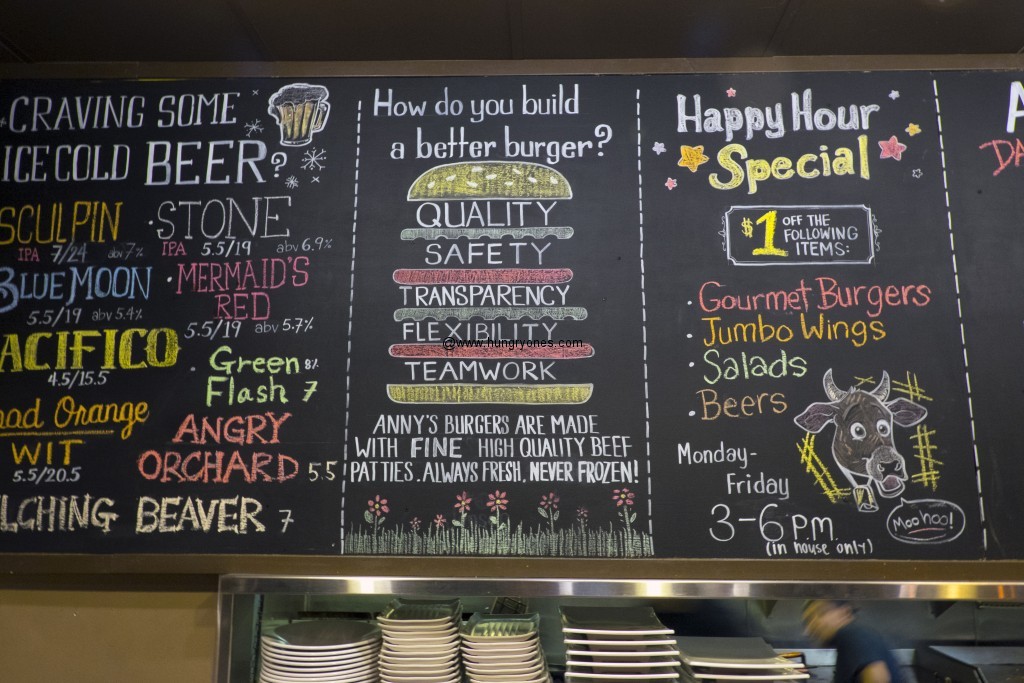 CRAVING SOME
ICE COLD BEER?
SCULPIN
IPA 7/24 abv 7%
BLUE MOON
5.5/19 abv 5.4%
PACIFICO
4.5/15.5
Blood Orange
WIT
5.5/20.5
BELCHING BEAVER 7
STONE
IPA 5.5/19 abv 6.9%
MERMAID'S
RED
5.5/19 abv 5.7%
Green 8%
Flash 7
ANGRY
ORCHARD 5.5
How do you build
a better burger?
QUALITY
SAFETY
TRANSPARENCY
FLEXIBILITY
@www.hungryones.com
TEAMWORK
ANNY'S BURGERS ARE MADE
WITH FINE HIGH QUALITY BEEF
PATTIES. ALWAYS FRESH, NEVER FROZEN!
Happy Hour
Special
$1 OFF THE
FOLLOWING
ITEMS:
· Gourmet Burgers
· Jumbo Wings
· Salads
· Beers
Monday-
Friday
3-6 P.M.
(in house only)
Moo hoo!
A
DA